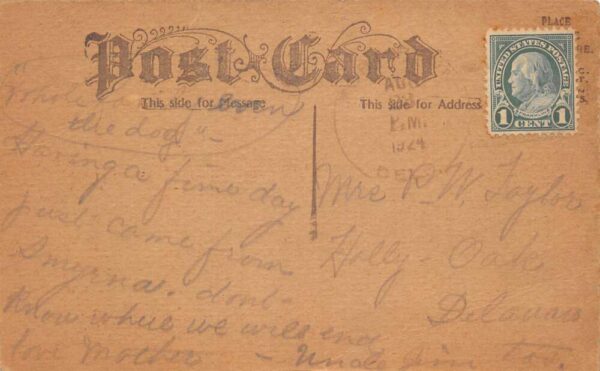 Post Card
This side for Message
This side for Address
PLACE
UNITED STATES POSTAGE
1 CENT 1
AUG
P.M.
1924
DEL.
even
the dog"
Having a fine day
just came from
Smyrna. dont
know where we will end
love Mother - Uncle Jim
Mrs P. W. Taylor
Holly - Oak
Delaware